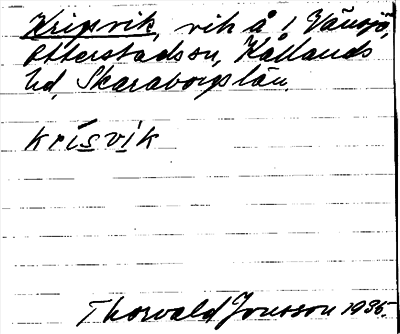 Kripsvik, vik å i Vänsjö,
Otterstadson, Kållands
hd, Skaraborgs län.
krísvík
Thorvald Jonsson 1935.